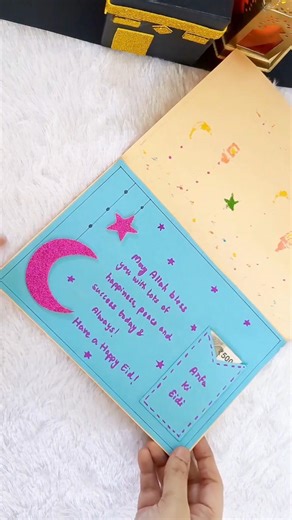 May Allah bless
you with lots of
happiness, peace and
success today &
Always!
Have a Happy Eid!
500
Ki
Eidi